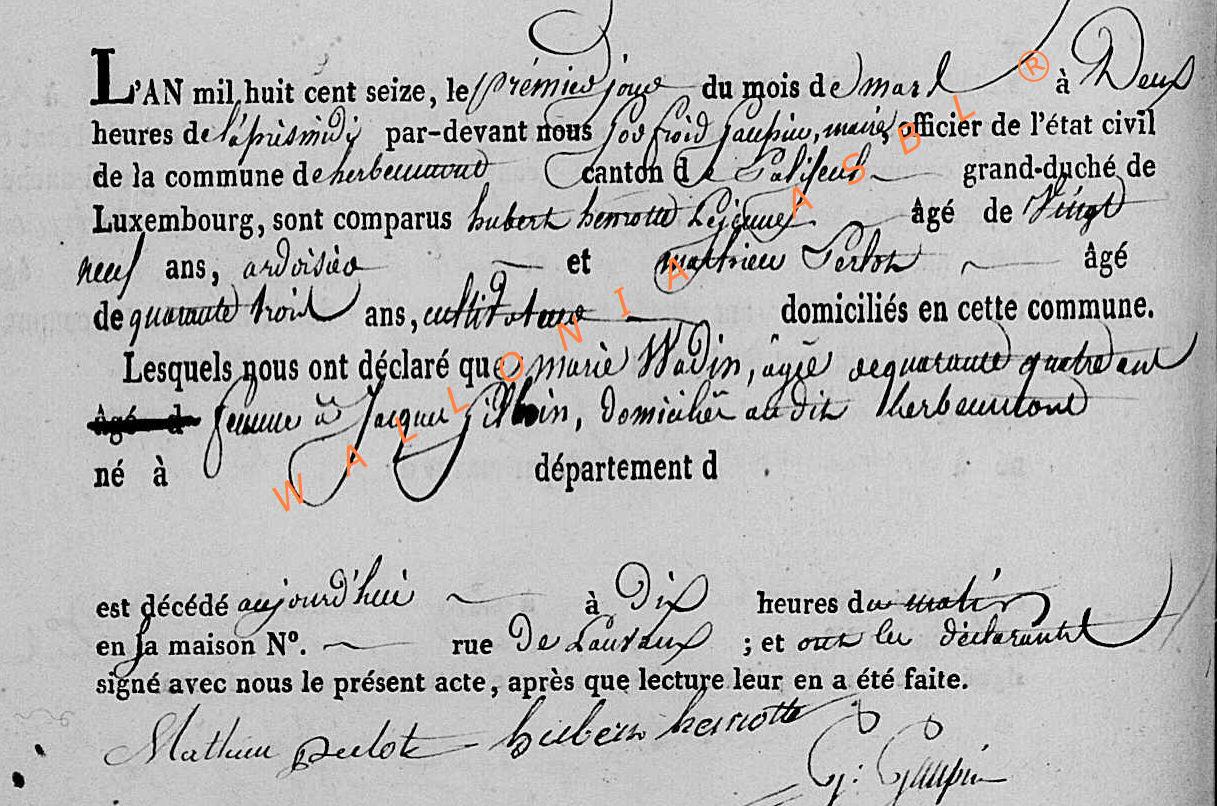 L'AN mil huit cent seize, le premier jour du mois de mars à Deux
heures de l'après midy par-devant nous Godfroid Gaupin, maire, officier de l'état civil
de la commune de herbeumont canton de Paliseul grand-duché de
Luxembourg, sont comparus hubert henrotte Lejeune âgé de Vingt
neuf ans, ardoisier et mathieu Perlot âgé
de quarante trois ans, cultivateur domiciliés en cette commune.
Lesquels nous ont déclaré que marie Wadin, âgée de quarante quatre ans
âgé d femme à Jacques domiciliée audit herbeumont
né à département d
est décédé aujourd'hui à Dix heures du matin
en sa maison N°. rue De ; et ont les déclarants
signé avec nous le présent acte, après que lecture leur en a été faite.
Mathieu perlot hubert henrotte
G: Gaupin
WALLONIA ASBL ®